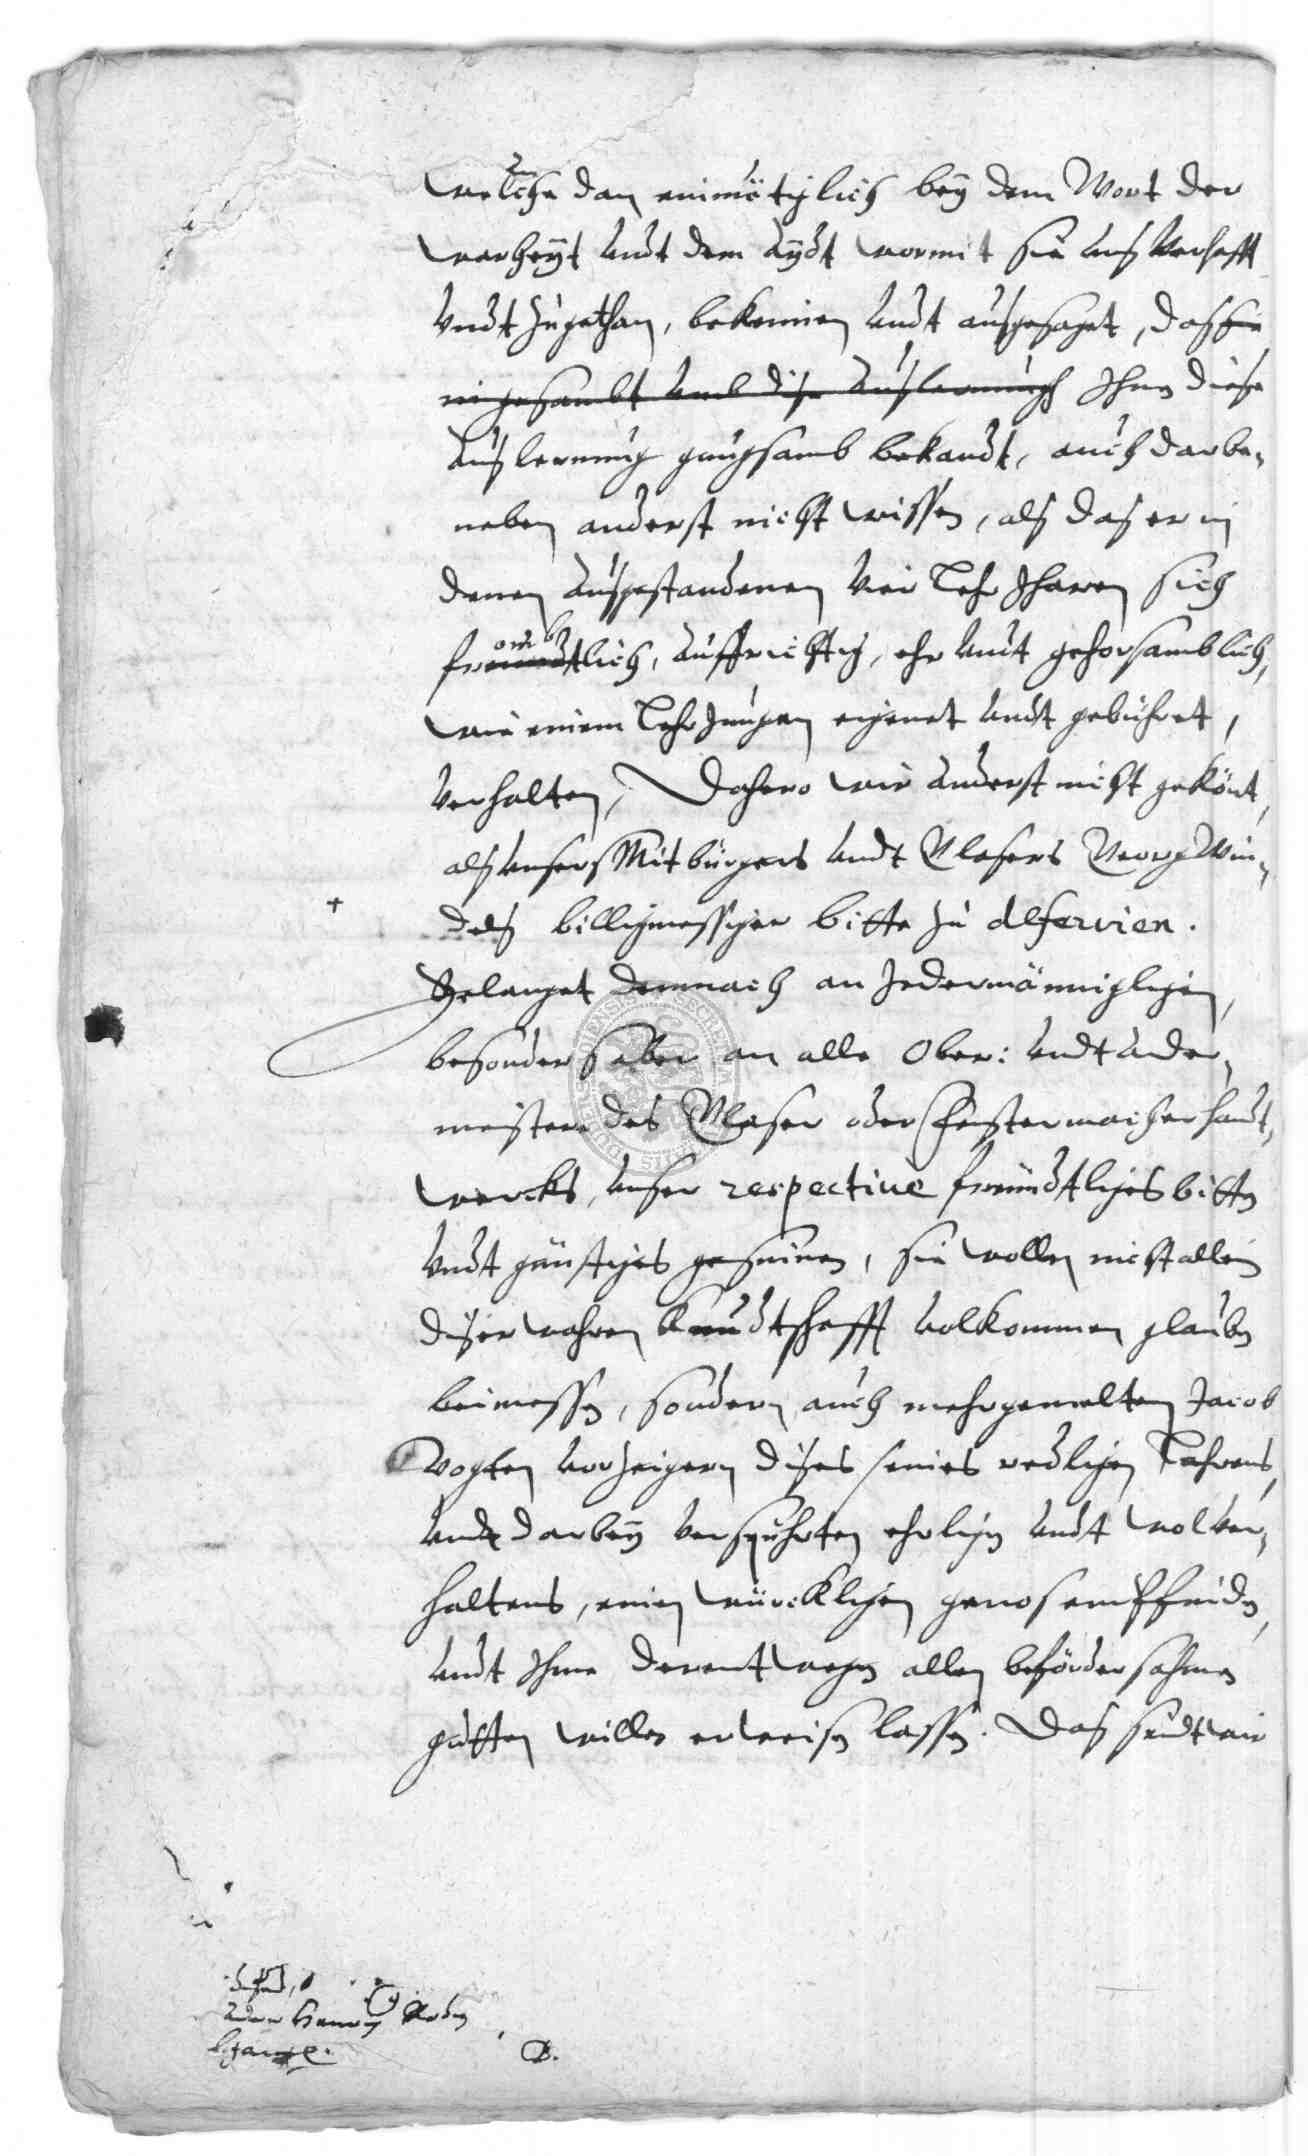 welche dan einmütiglich bey dem Wort der
warheyt undt dem Aydt wormit sie uns verhafft
undt zugethan, bekennen undt ausgesaget, das sie
ingesambt umb dise Auslernung Ihnen diese
Auslernung gnugsamb bekandt, auch darbe-
neben anderst nicht wissen, als das er in
denen Ausgestandenen vier Lehr Jharen sich
fromblich, Auffrichtig, ehr undt gehorsamblich,
wie einem Lehr Jungen eignet undt gebühret,
verhalten, Dahero wir Anderst nicht gekönt,
als unsers Mitbürgers undt Glasers Georg Win-
dels billigmessiger bitte zu deferiren.
+
Gelanget demnach an Jedermänniglichen,
besonders aber an alle Ober: undt Under-
meistere des Glaser oder Fenstermacher handt-
wercks, unser respective freundtliches bitten
undt günstiges gesinnen, sie wollen nicht allein
diser wahren Kundtschafft volkommen glauben
beimessen, sondern auch mehrgemelten Jacob
Vogten vorzeigern dises seines redlichen Lehrens,
undt darbey verspührten ehrlichen undt wolver-
haltens, einen würcklichen genos empfinden,
undt Ihme derentwegen allen befördersahmen
gutten willen erweisen lassen. Das sindt wir